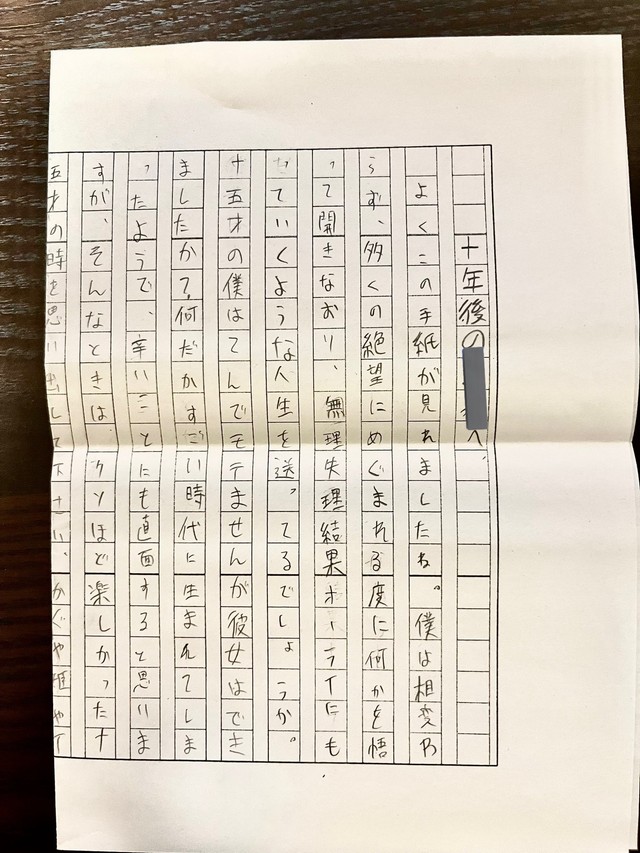 十年後の へ、
よくこの手紙が見れましたね。僕は相変わ
らず、多くの絶望にめぐまれる度に何かを悟
って開きなおり、無理失理結果オーライにも
っていくような人生を送ってるでしょうか。
十五才の僕はてんでモテませんが彼女はでき
ましたか?何だかすごい時代に生まれてしま
ったようで、辛いことにも直面すると思いま
すが、そんなときは、クソほど楽しかった十
五才の時を思い出して下さい。かぐや姫やイ